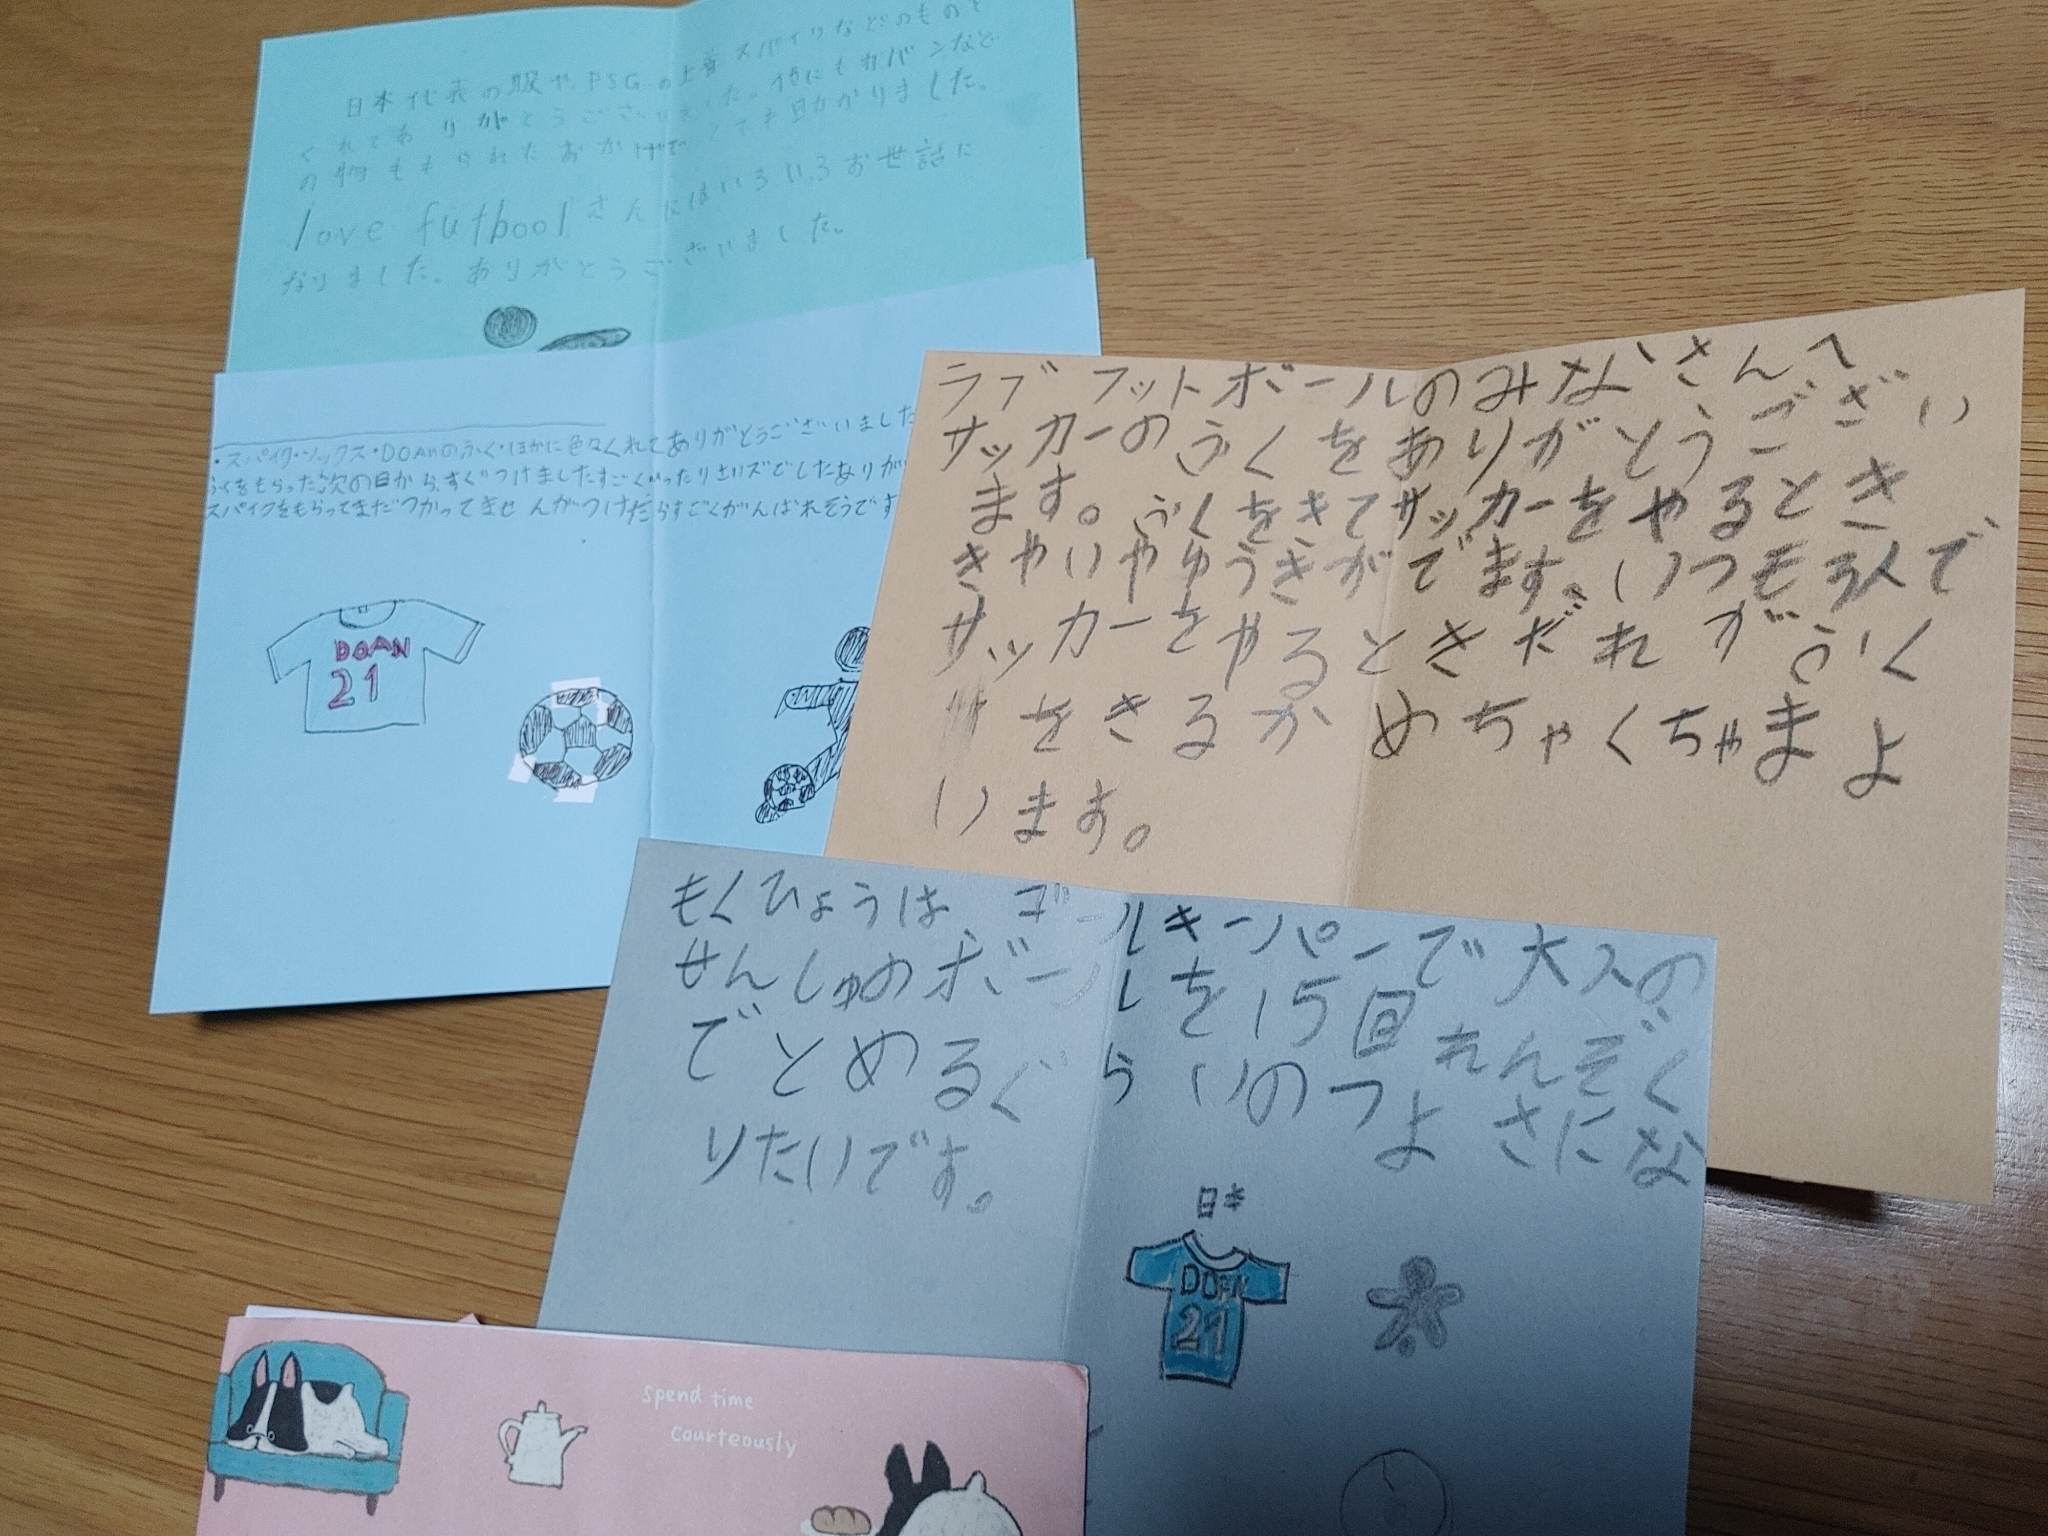 日本代表の服や、PSGの上着スパイクなどのものを
くれてありがとうございました。他にもカバンなど
の物をもらえたおかげでとても助かりました。
love futboolさんにはいろいろお世話に
なりました。ありがとうございました。
・スパイク・ソックス・DOANのふく・ほかに色々くれてありがとうございました
ふくをもらった次の日から、すぐつけましたすごくぴったりさいズでしたありが
スパイクをもらってまだつかってませんがつけたらすごくがんばれそうです
DOAN
21
ラブフットボールのみなさんへ
サッカーのふくをありがとうござい
ます。ふくをきてサッカーをやるとき
きやいやゆうきがでます。いつも3人で
サッカーをやるときだれがふく
をきるかめちゃくちゃまよ
います。
もくひょうは、ゴールキーパーで大人の
せんしゅのボールを15回れんぞく
でとめるぐらいのつよさにな
りたいです。
日本
DOAN
21
spend time
courteously